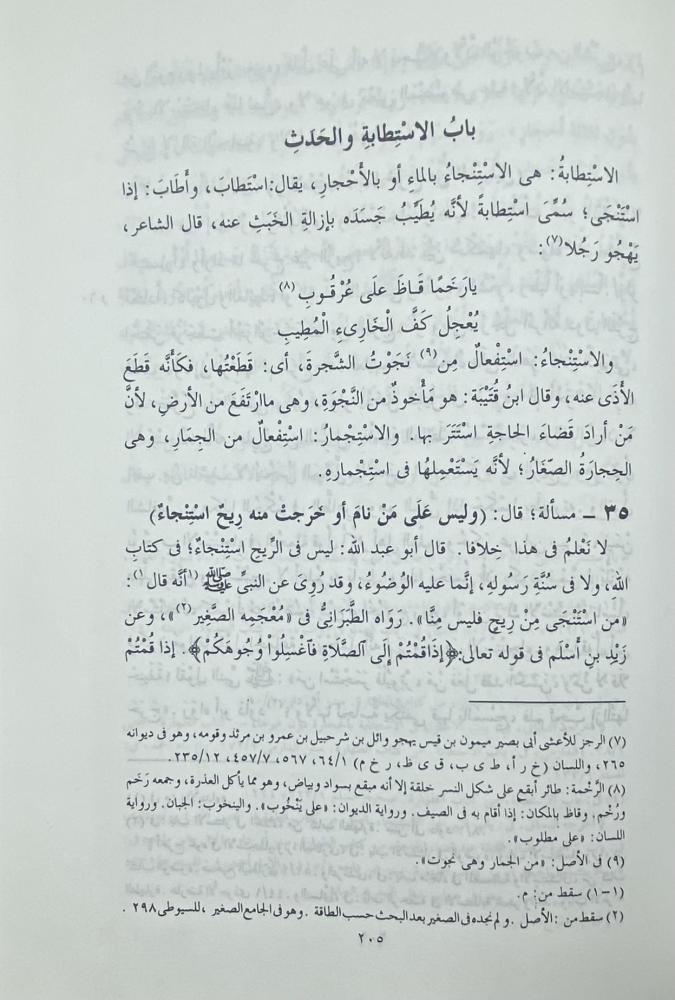 بابُ الاسْتِطابةِ والحَدَثِ
الاسْتِطابةُ: هى الاسْتِنْجاءُ بالماءِ أو بالأَحْجارِ، يقال: اسْتَطابَ، وأَطَابَ: إذا
اسْتَنْجَى؛ سُمِّىَ اسْتِطابةً لأنَّه يُطَيِّبُ جَسَدَه بإزالةِ الخَبَثِ عنه، قال الشاعر،
يَهْجُو رَجُلا(٧):
يارَخَمًا قَاظَ علَى عُرْقُوبِ(٨)
يُعْجِلُ كَفَّ الخَارِىءِ الْمُطِيبِ
والاسْتِنْجاءُ: اسْتِفْعالٌ مِن(٩) نَجَوْتُ الشَّجرةَ، أى: قَطَعْتُها، فكأنَّه قَطَعَ
الأَذَى عنه، وقال ابنُ قُتَيْبَة: هو مَأْخوذٌ من النَّجْوَةِ، وهى ماارْتَفَعَ من الأرضِ، لأنَّ
مَنْ أرادَ قَضاءَ الحاجةِ اسْتَتَرَ بها. والاسْتِجْمارُ: اسْتِفْعالٌ من الجِمَارِ، وهى
الحِجارَةُ الصِّغَارُ؛ لأنَّه يَسْتَعْمِلُها فى اسْتِجْمارِهِ.
٣٥ ــ مسألة؛ قال: (وليس عَلَى مَنْ نامَ أو خَرَجتْ منه رِيحٌ اسْتِنْجاءٌ)
لا نَعْلمُ فى هذا خِلافا. قال أبو عبد الله: ليس فى الرِّيحِ اسْتِنْجاءٌ؛ فى كتابِ
الله، ولا فى سُنَّةِ رَسُولهِ، إنَّما عليه الوُضُوءُ، وقد رُوِىَ عن النبىِّ ﷺ (١أنَّه قال١):
«من اسْتَنْجَى مِنْ رِيحٍ فليس مِنَّا». رَوَاه الطَّبَرَانِىُّ فى «مُعْجَمِه الصَّغِيرِ(٢)»، وعن
زَيْدِ بنِ أَسْلَم فى قوله تعالى: ﴿إِذَاقُمْتُمْ إِلَى ٱلصَّلَاةِ فَٱغْسِلُواْ وُجُوهَكُمْ﴾. إذا قُمْتُمْ
(٧) الرجز للأعشى أبى بصير ميمون بن قيس يهجو وائل بن شرحبيل بن عمرو بن مرثد وقومه، وهو فى ديوانه
٢٦٥، واللسان (خ ر أ، ط ى ب، ق ى ظ، ر خ م) ٦٤/١، ٥٦٧، ٤٥٧/٧، ٢٣٥/١٢.
(٨) الرَّخمة: طائر أبقع على شكل النسر خلقة إلا أنه مبقع بسواد وبياض، وهو مما يأكل العذرة، وجمعه رَخم
ورُخْم. وقاظ بالمكان: إذا أقام به فى الصيف. ورواية الديوان: «على يَنْخُوب». والينخوب: الجبان. ورواية
اللسان: «على مطلوب».
(٩) فى الأصل: «من الجمار وهى نجوت».
(١-١) سقط من: م.
(٢) سقط من: الأصل. ولم نجده فى الصغير بعد البحث حسب الطاقة. وهو فى الجامع الصغير، للسيوطى ٢٩٨.
٢٠٥